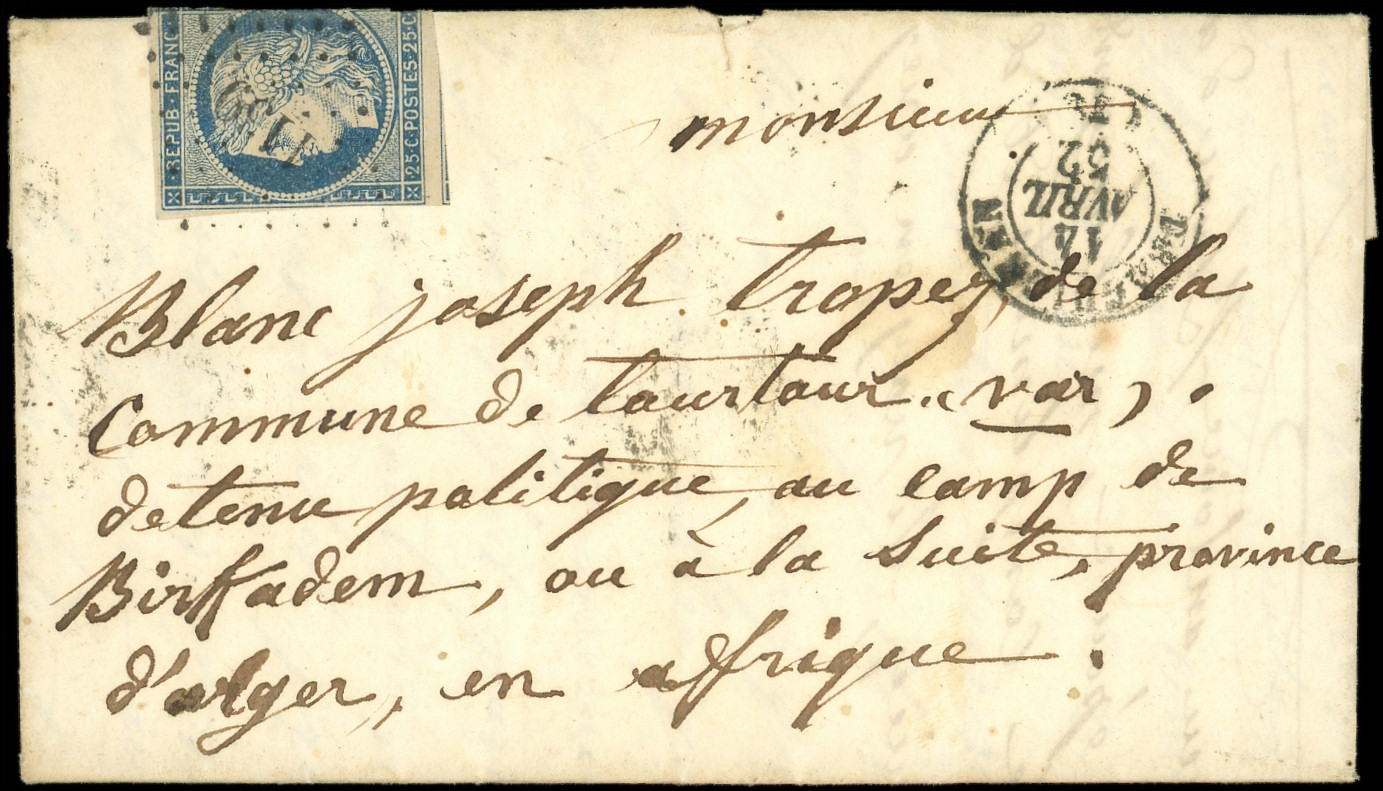 REPUB·FRANC
25·C·POSTES·25·C
monsieur
14
AVRIL
52
Blanc joseph tropez, de la
Commune de tourtour (var).
detenu politique, au camp de
Birkadem, ou à la suite, province
d'alger, en afrique.